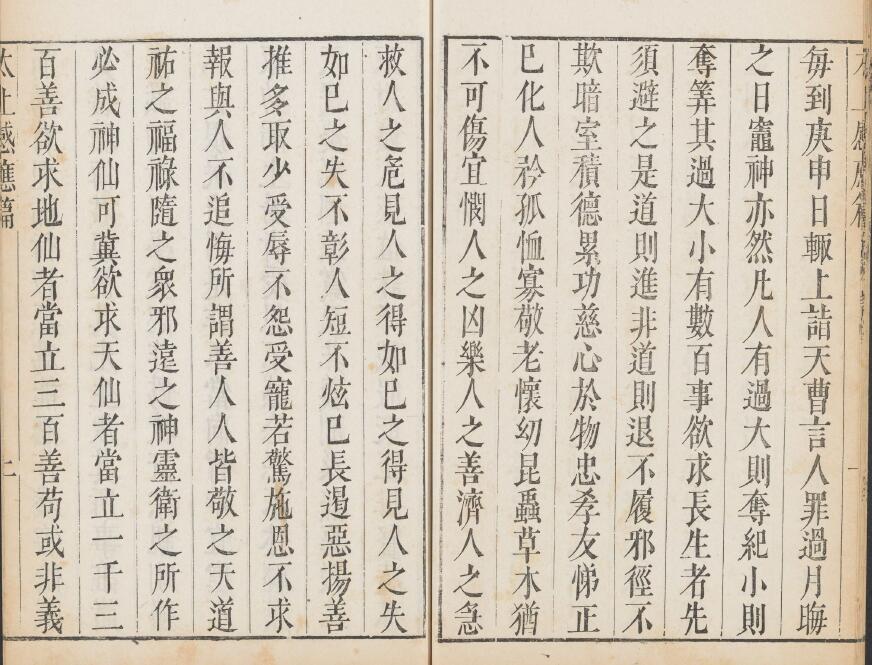 每到庚申日輙上詣天曹言人罪過月晦
之日竈神亦然凡人有過大則奪紀小則
奪筭其過大小有數百事欲求長生者先
須避之是道則進非道則退不履邪徑不
欺暗室積德累功慈心於物忠孝友悌正
已化人矜孤恤寡敬老懷幼昆蟲草木猶
不可傷宜憫人之凶樂人之善濟人之急
救人之危見人之得如已之得見人之失
如已之失不彰人短不炫已長遏惡揚善
推多取少受辱不怨受寵若驚施恩不求
報與人不追悔所謂善人人皆敬之天道
祐之福祿隨之衆邪遠之神靈衛之所作
必成神仙可冀欲求天仙者當立一千三
百善欲求地仙者當立三百善苟或非義
太上感應篇